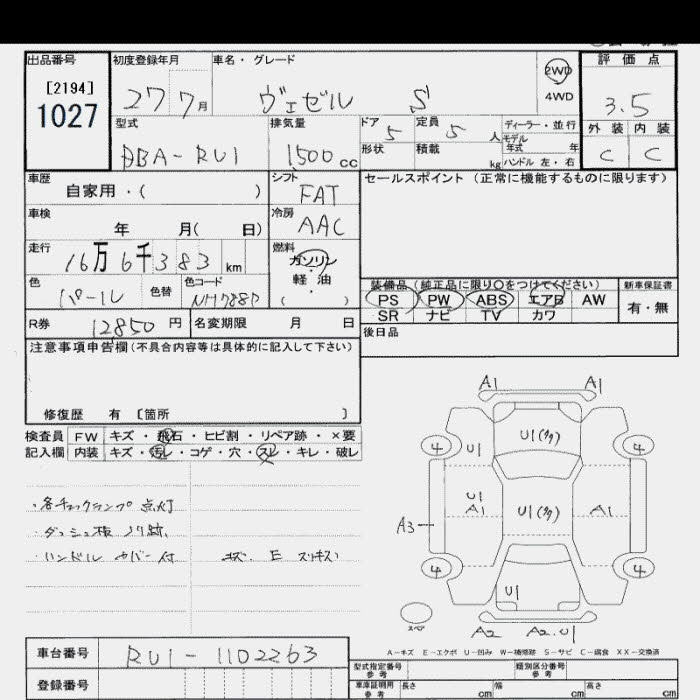 出品番号 初度登録年月 車名・グレード 評価点
[2194]
1027
27 7月 ヴェゼル S
2WD
4WD
3.5
型式 排気量 ドア 定員 ディーラー・並行
DBA-RU1 1500cc 5 5人
モデル年式 年
形状 積載 kg ハンドル 左・右
外装 内装
C C
車歴 シフト セールスポイント (正常に機能するものに限ります)
自家用・( ) FAT
車検 冷房
年 月( 日) AAC
走行 燃料
16万6千383km ガソリン
軽油
( )
色 色替 色コード
パール NH788P
装備品 (純正品に限り○をつけてください) 新車保証書
PS PW ABS エアB AW 有・無
SR ナビ TV カワ
R券 12850円 名変期限 月 日
後日品
注意事項申告欄(不具合内容等は具体的に記入して下さい)
修復歴 有 〔箇所 〕
検査員 FW キズ・飛石・ヒビ割・リペア跡・×要
記入欄 内装 キズ・汚レ・コゲ・穴・スレ・キレ・破レ
・各チェックランプ点灯
・ダッシュ板 ノリ跡
・ハンドル カバー付 キズ E スリキズ
A1 A1
U1(多)
4 U1 4
U1
A1 U1(多) A1
A3
4 4
U1
スペア
A2 A2.U1
A-キズ E-エクボ U-凹み W-補修跡 S-サビ C-腐食 XX-交換済
車台番号 RU1-1102263
登録番号
型式指定番号 参考 類別区分番号 参考
車庫証明用 参考 長さ cm 幅 cm 高さ cm